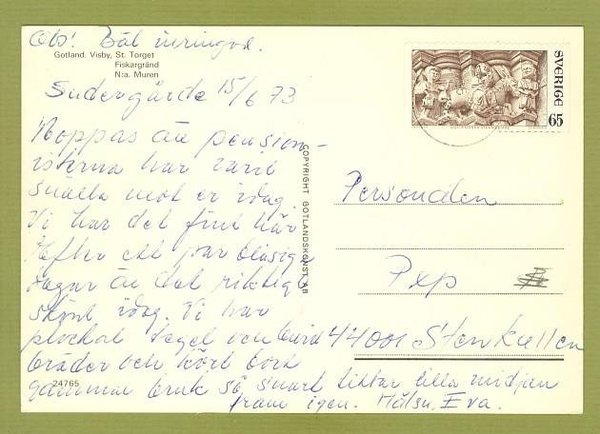 Obs! Bål
Gotland. Visby, St. Torget
Fiskargränd
N:a. Muren
Sudergårde 15/6 73
Hoppas än pension-
ärerna har varit
snälla mot er idag.
Vi har det fint här
Efter ett par blåsiga
dagar än det riktigt
skönt idag. Vi har
plockat tegel och burit
bräder och kört bort
gammal bruk så snart tittar lilla midjan
fram igen. Hälsn. Eva.
24765
COPYRIGHT GOTLANDSKONST AB
SVERIGE
65
Personalen
Pxp
44001 Stenkullen